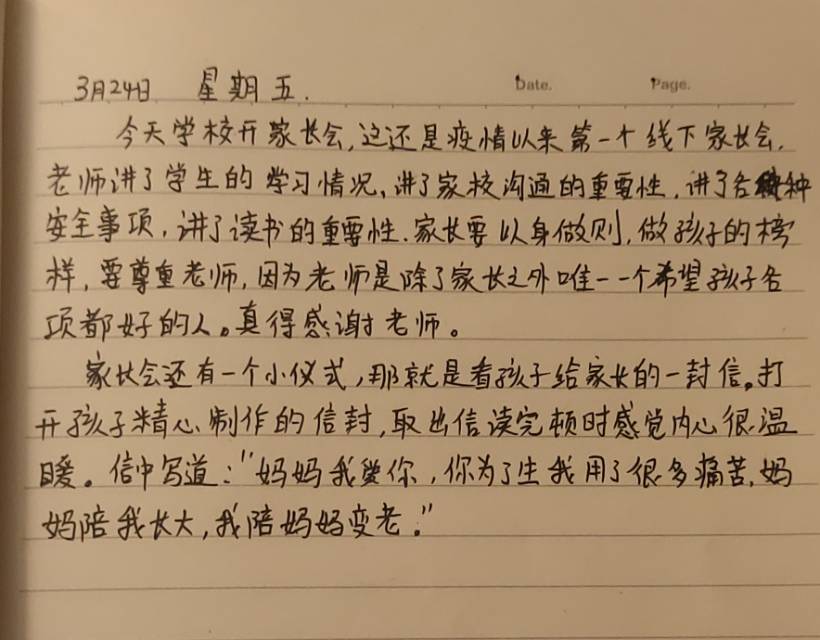 Date.
Page.
3月24日 星期五.
今天学校开家长会,这还是疫情以来第一个线下家长会,
老师讲了学生的学习情况,讲了家校沟通的重要性,讲了各种
安全事项,讲了读书的重要性.家长要以身做则,做孩子的榜
样,要尊重老师,因为老师是除了家长之外唯一一个希望孩子各
项都好的人。真得感谢老师。
家长会还有一个小仪式,那就是看孩子给家长的一封信。打
开孩子精心制作的信封,取出信读完顿时感觉内心很温
暖。信中写道:"妈妈我爱你,你为了生我用了很多痛苦,妈
妈陪我长大,我陪妈妈变老."